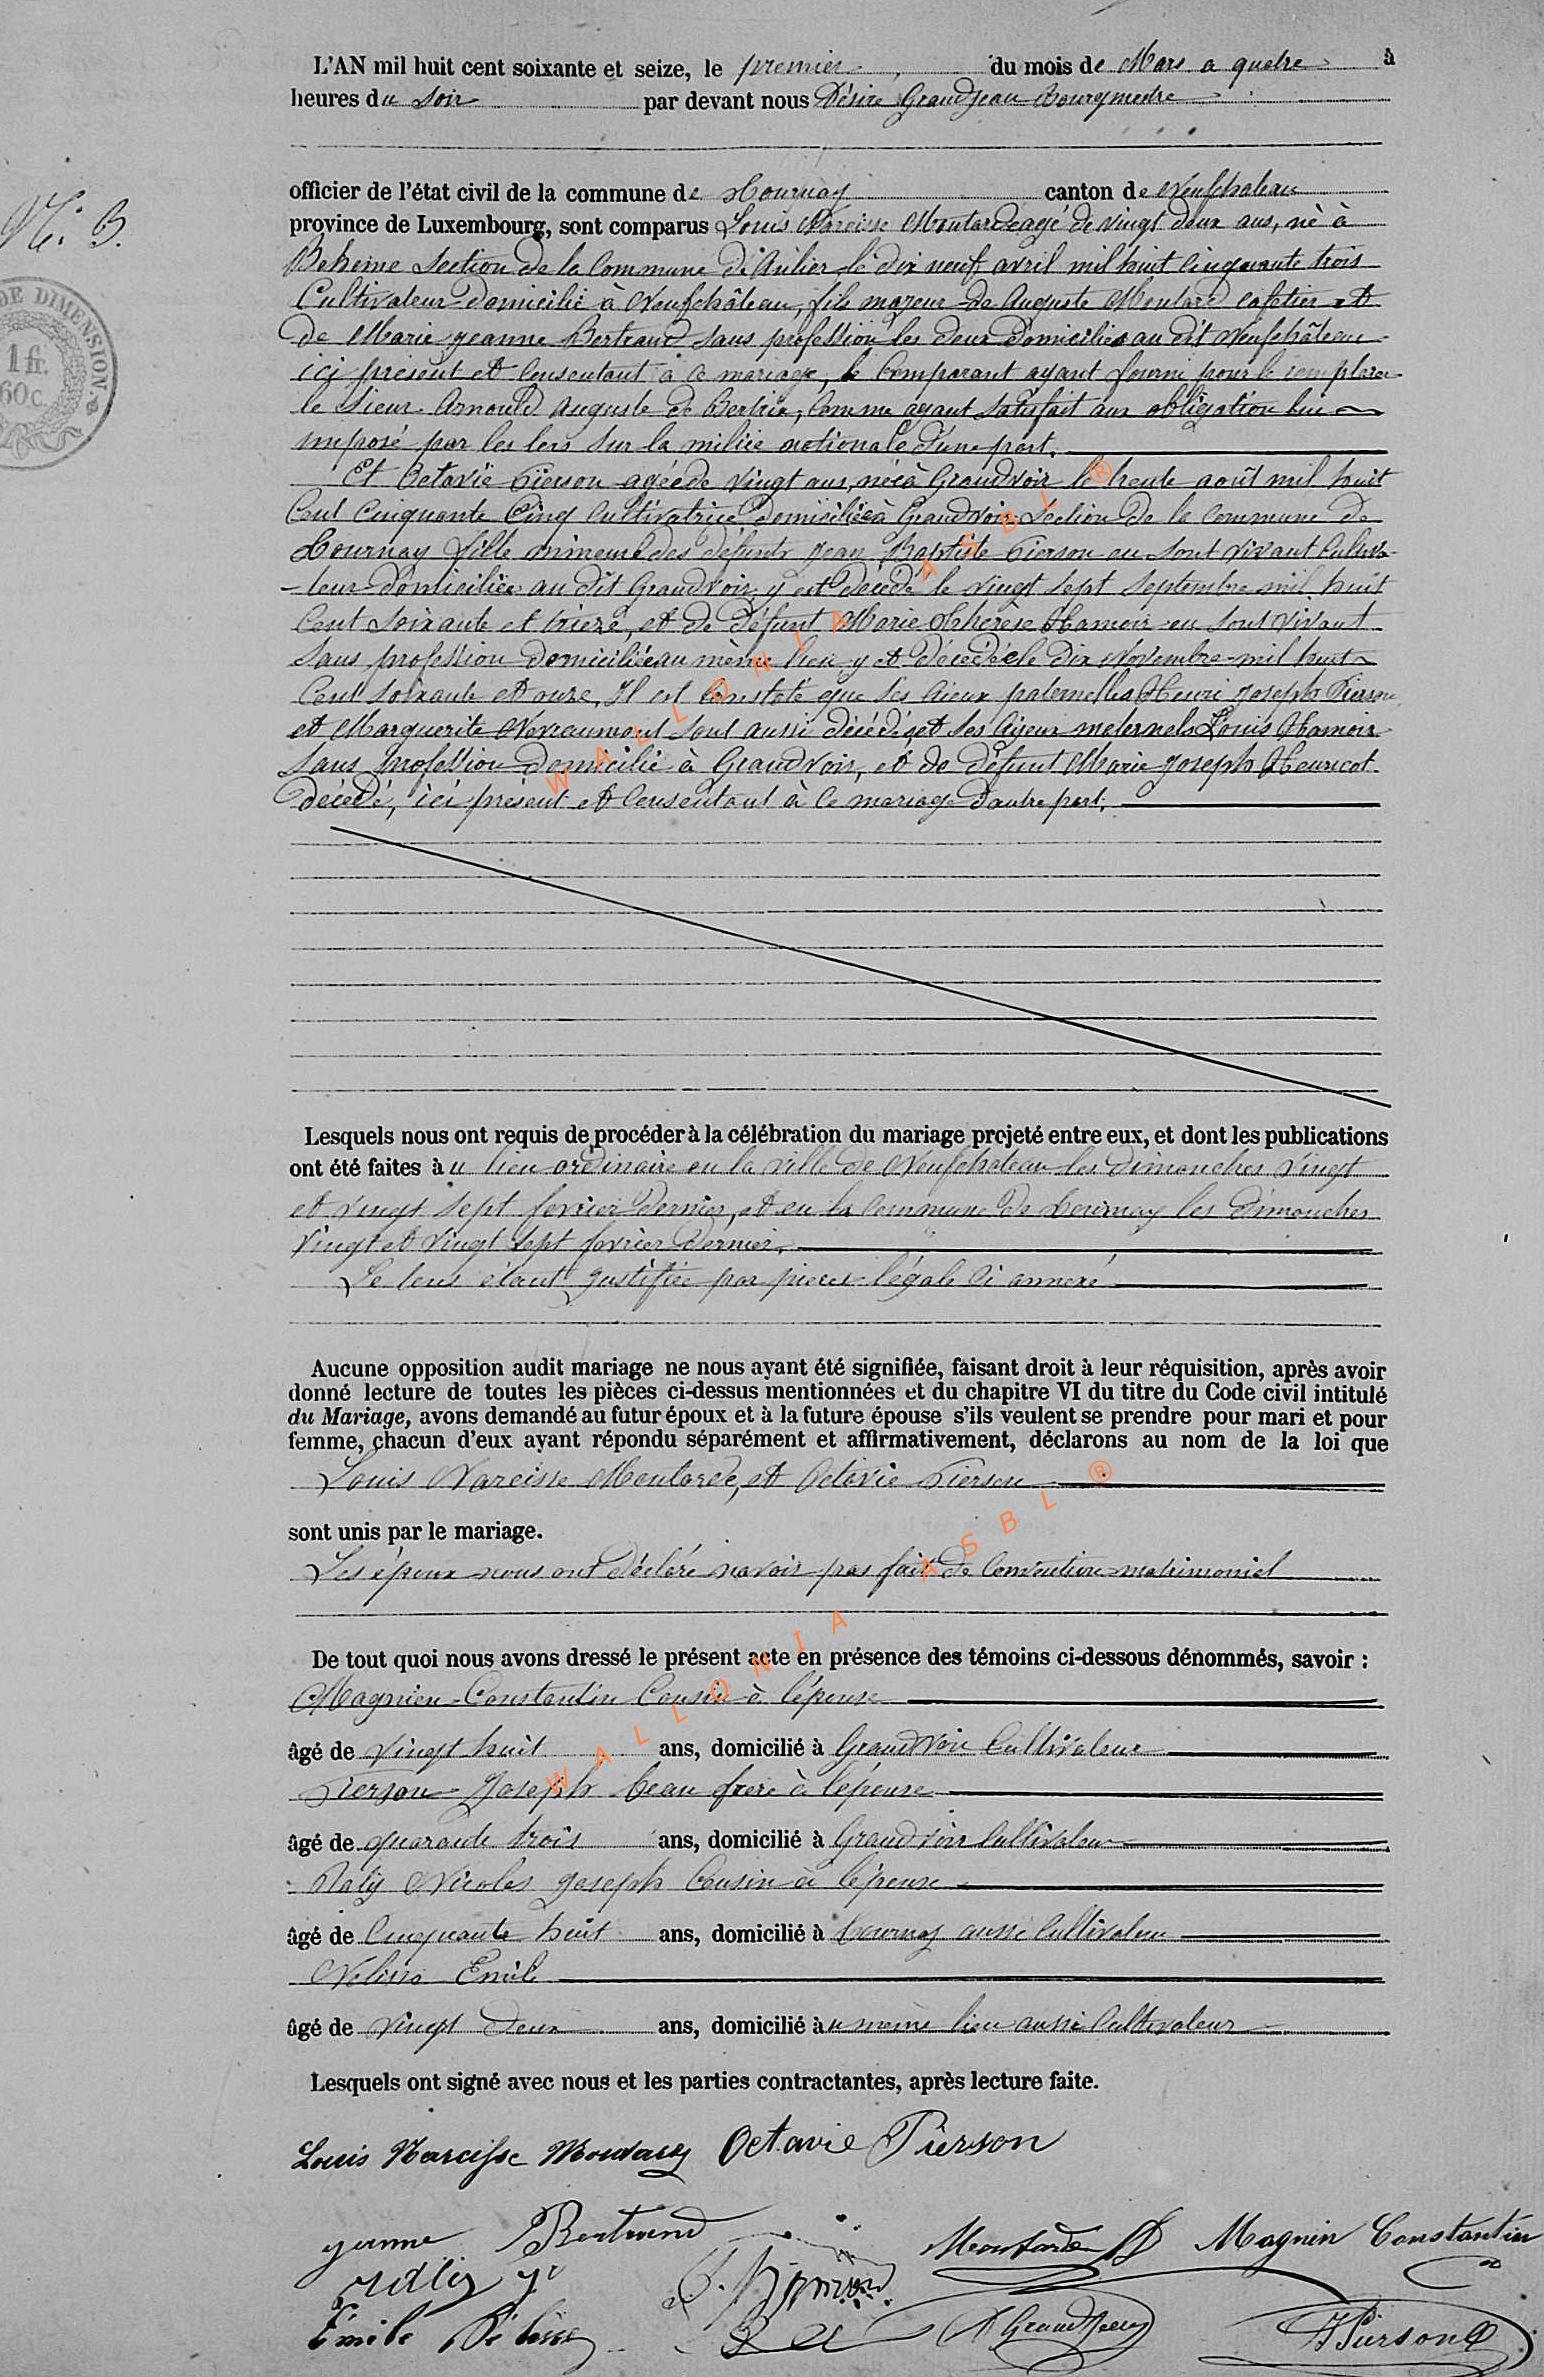 L'AN mil huit cent soixante et seize, le premier du mois de Mars a quatre à
heures du soir par devant nous Désiré Grandjean Bourgmestre
officier de l'état civil de la commune de Tournay canton de Neufchateau
N°. 3.
province de Luxembourg, sont comparus Louis Narcisse Moutarde agé de vingt deux ans, né à
Beheme section de la commune d'Anlier le dix neuf avril mil huit cinquante trois
DE DIMENSION.
1 fr.
60c.
Cultivateur domicilié à Neufchâteau, fils majeur de Auguste Moutard cafetier et
de Marie jeanne Bertrand sans profession les deux domiciliés au dit Neufchâteau
ici présent et consentant à ce mariage, le comparant ayant fourni pour le remplacer
le sieur Arnould Auguste de Bertrix, comme ayant satisfait aux obligation lui
imposé par les lois sur la milice nationale d'une part.
Et Octavie Pierson agée de vingt ans, née à Grandvoir le trente août mil huit
cent cinquante cinq cultivatrice domiciliée à Grandvoir section de la commune de
Tournay fille mineure des défunts Jean Baptiste Pierson en sont vivant cultiva-
-teur domicilié au dit Grandvoir y est décédé le vingt sept septembre mil huit
cent soixante et treize, et de défunt Marie Thérèse Hamoir en sont vivant
sans profession domiciliée au même lieu y et décédée le dix Novembre mil huit
cent soixante et onze, Il est constaté que ses aieux paternelles Henri Joseph Pierson
et Marguerite Nevraumont sont aussi décédé, et ses aieux maternels Louis Hamoir
sans profession domicilié à Grandvoir, et de défunt Marie Joseph Henricot
décédé, ici présent et consentant à ce mariage d'autre part.
WALLONIA ASBL ®
Lesquels nous ont requis de procéder à la célébration du mariage projeté entre eux, et dont les publications
ont été faites au lieu ordinaire en la ville de Neufchateau les dimanches vingt
et vingt sept fevrier dernier, et en la commune de Tournay les dimanches
vingt et vingt sept fevrier dernier.
Le tous étant justifiée par pieces légale ci annexé
Aucune opposition audit mariage ne nous ayant été signifiée, faisant droit à leur réquisition, après avoir
donné lecture de toutes les pièces ci-dessus mentionnées et du chapitre VI du titre du Code civil intitulé
du Mariage, avons demandé au futur époux et à la future épouse s'ils veulent se prendre pour mari et pour
femme, chacun d'eux ayant répondu séparément et affirmativement, déclarons au nom de la loi que
Louis Narcisse Moutarde, et Octavie Pierson
sont unis par le mariage.
Les époux nous ont déclaré navoir pas fait de convention matrimoniel
WALLONIA ASBL ®
De tout quoi nous avons dressé le présent acte en présence des témoins ci-dessous dénommés, savoir :
Magnien Constantin Cousin à l'épouse
âgé de vingt huit ans, domicilié à Grandvoir Cultivateur
Pierson Joseph beau frere à l'épouse
âgé de quarante trois ans, domicilié à Grandvoir Cultivateur
Nicolas Joseph Cousin à l'épouse
âgé de Cinquante huit ans, domicilié à Tournay aussi Cultivateur
Emile
âgé de vingt deux ans, domicilié au même lieu aussi Cultivateur
Lesquels ont signé avec nous et les parties contractantes, après lecture faite.
Louis Narcisse Moutarde Octavie Pierson
Jeanne Bertrand Moutarde Magnin Constantin
Emile D Grandjean J Pierson